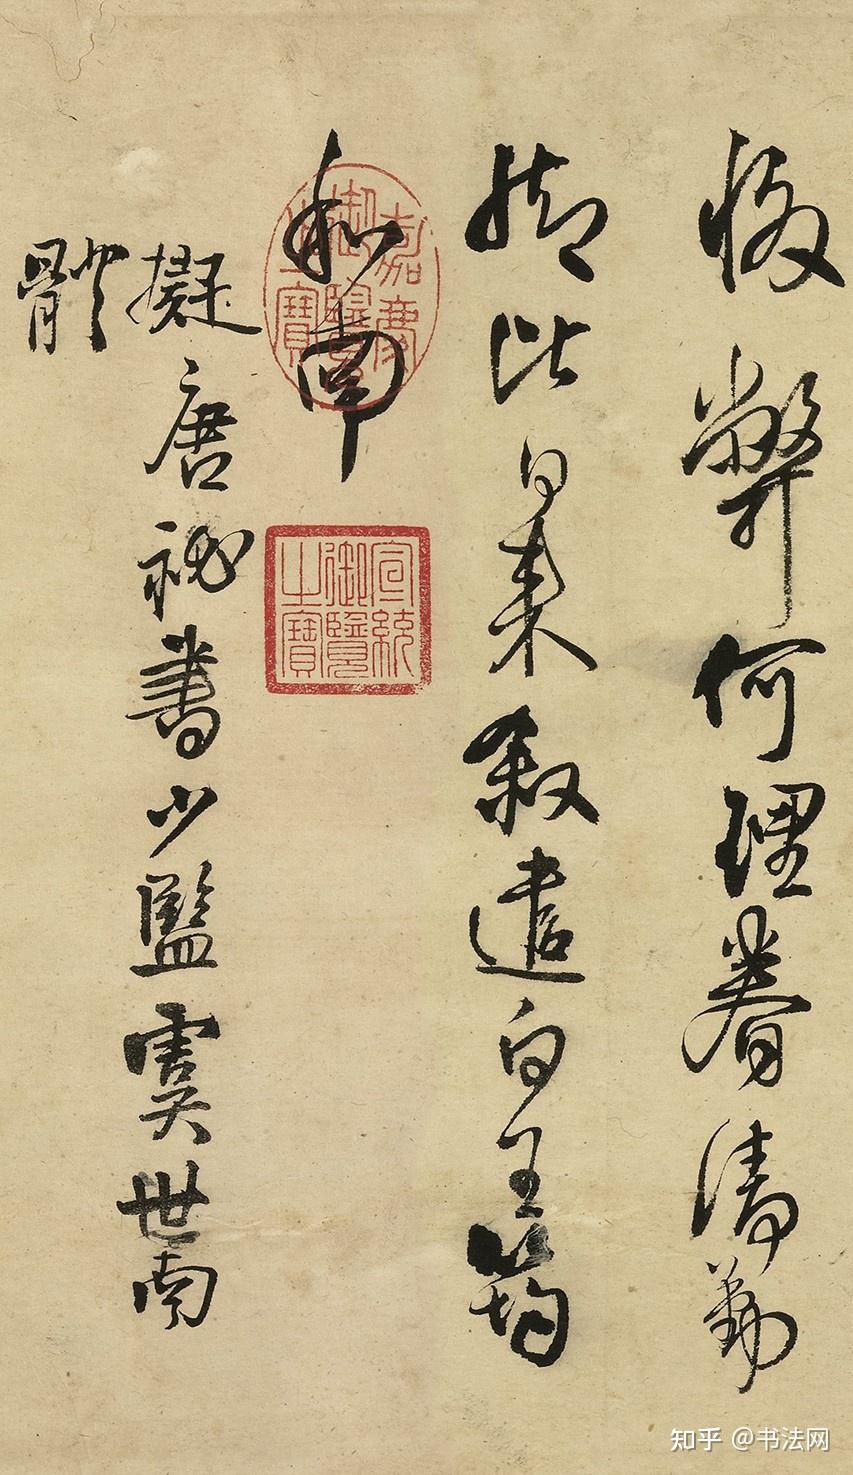 弊何理眷清勤
比日來叙遣白王筠
和南
擬唐祕書少監虞世南
體
嘉慶
御覽
之寶
宣統
御覽
之寶
知乎 @书法网